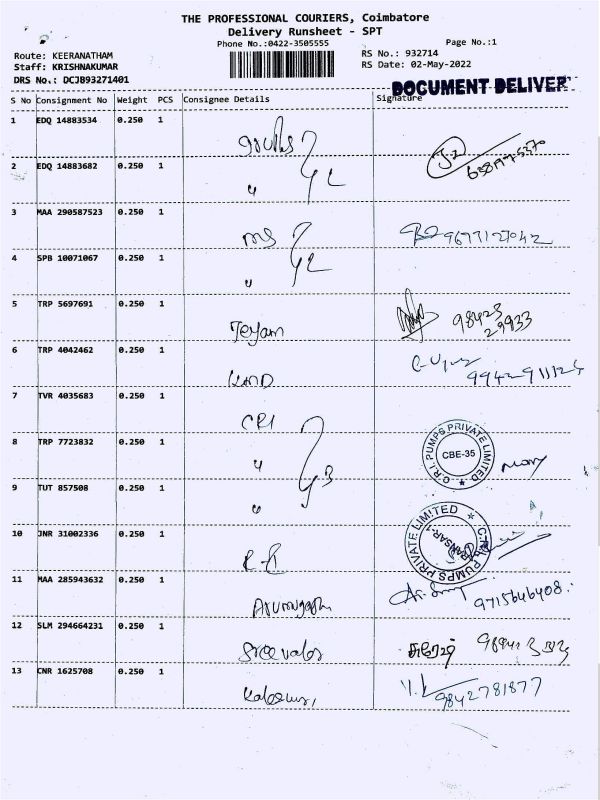 THE PROFESSIONAL COURIERS, Coimbatore
Delivery Runsheet - SPT
Phone No.:0422-3505555
Page No.:1
Route: KEERANATHAM
RS No.: 932714
Staff: KRISHNAKUMAR
RS Date: 02-May-2022
DRS No.: DCJB93271401
DOCUMENT DELIVER
S No Consignment No Weight PCS Consignee Details Signature
1 EDQ 14883534 0.250 1
2 EDQ 14883682 0.250 1 "
3 MAA 290587523 0.250 1 ms 9677127042
4 SPB 10071067 0.250 1 "
5 TRP 5697691 0.250 1 Jeyam 98423 29933
6 TRP 4042462 0.250 1
7 TVR 4035683 0.250 1 CRI
8 TRP 7723832 0.250 1 " C.R.I. PUMPS PRIVATE LIMITED CBE-35
9 TUT 857508 0.250 1 "
10 JNR 31002336 0.250 1 C.R.I. PUMPS PRIVATE LIMITED
11 MAA 285943632 0.250 1 Arumugam 9715646408
12 SLM 294664231 0.250 1 சுரேஷ்
13 CNR 1625708 0.250 1 9842781877